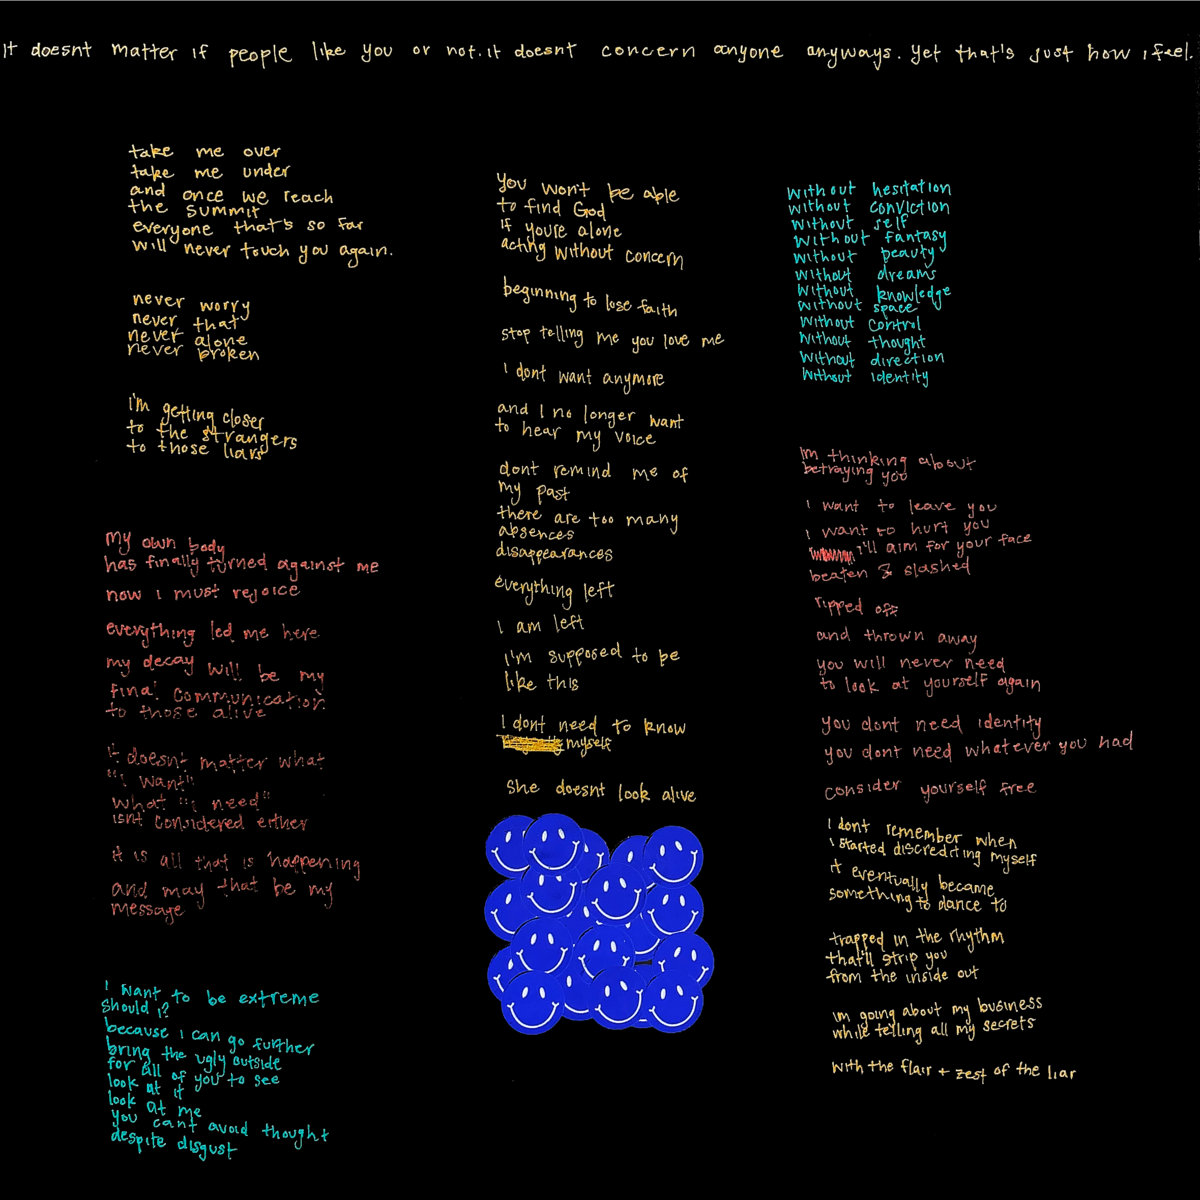 it doesnt matter if people like you or not. it doesnt concern anyone anyways. yet that's just how i feel.
take me over
take me under
and once we reach
the summit
everyone that's so far
will never touch you again.
never worry
never that
never alone
never broken
i'm getting closer
to the strangers
to those liars
my own body
has finally turned against me
now i must rejoice
everything led me here
my decay will be my
final communication
to those alive
it doesnt matter what
"i want"
what "i need"
isnt considered either
it is all that is happening
and may that be my
message
i want to be extreme
should i?
because i can go further
bring the ugly outside
for all of you to see
look at it
look at me
you cant avoid thought
despite disgust
you won't be able
to find God
if you're alone
acting without concern
beginning to lose faith
stop telling me you love me
i dont want anymore
and I no longer want
to hear my voice
dont remind me of
my past
there are too many
absences
disappearances
everything left
I am left
i'm supposed to be
like this
I dont need to know
myself
she doesnt look alive
without hesitation
without conviction
without self
without fantasy
without beauty
without dreams
without knowledge
without space
without control
without thought
without direction
without identity
im thinking about
betraying you
i want to leave you
i want to hurt you
i'll aim for your face
beaten & slashed
ripped off
and thrown away
you will never need
to look at yourself again
you dont need identity
you dont need whatever you had
consider yourself free
i dont remember when
i started discrediting myself
it eventually became
something to dance to
trapped in the rhythm
that'll strip you
from the inside out
im going about my business
while telling all my secrets
with the flair + zest of the liar